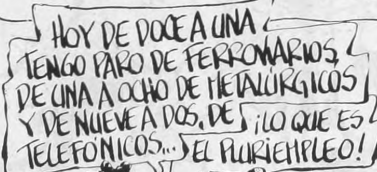 HOY DE DOCE A UNA
TENGO PARO DE FERROVIARIOS,
DE UNA A OCHO DE METALÚRGICOS
Y DE NUEVE A DOS, DE
TELEFÓNICOS...
¡LO QUE ES
EL PLURIEMPLEO!